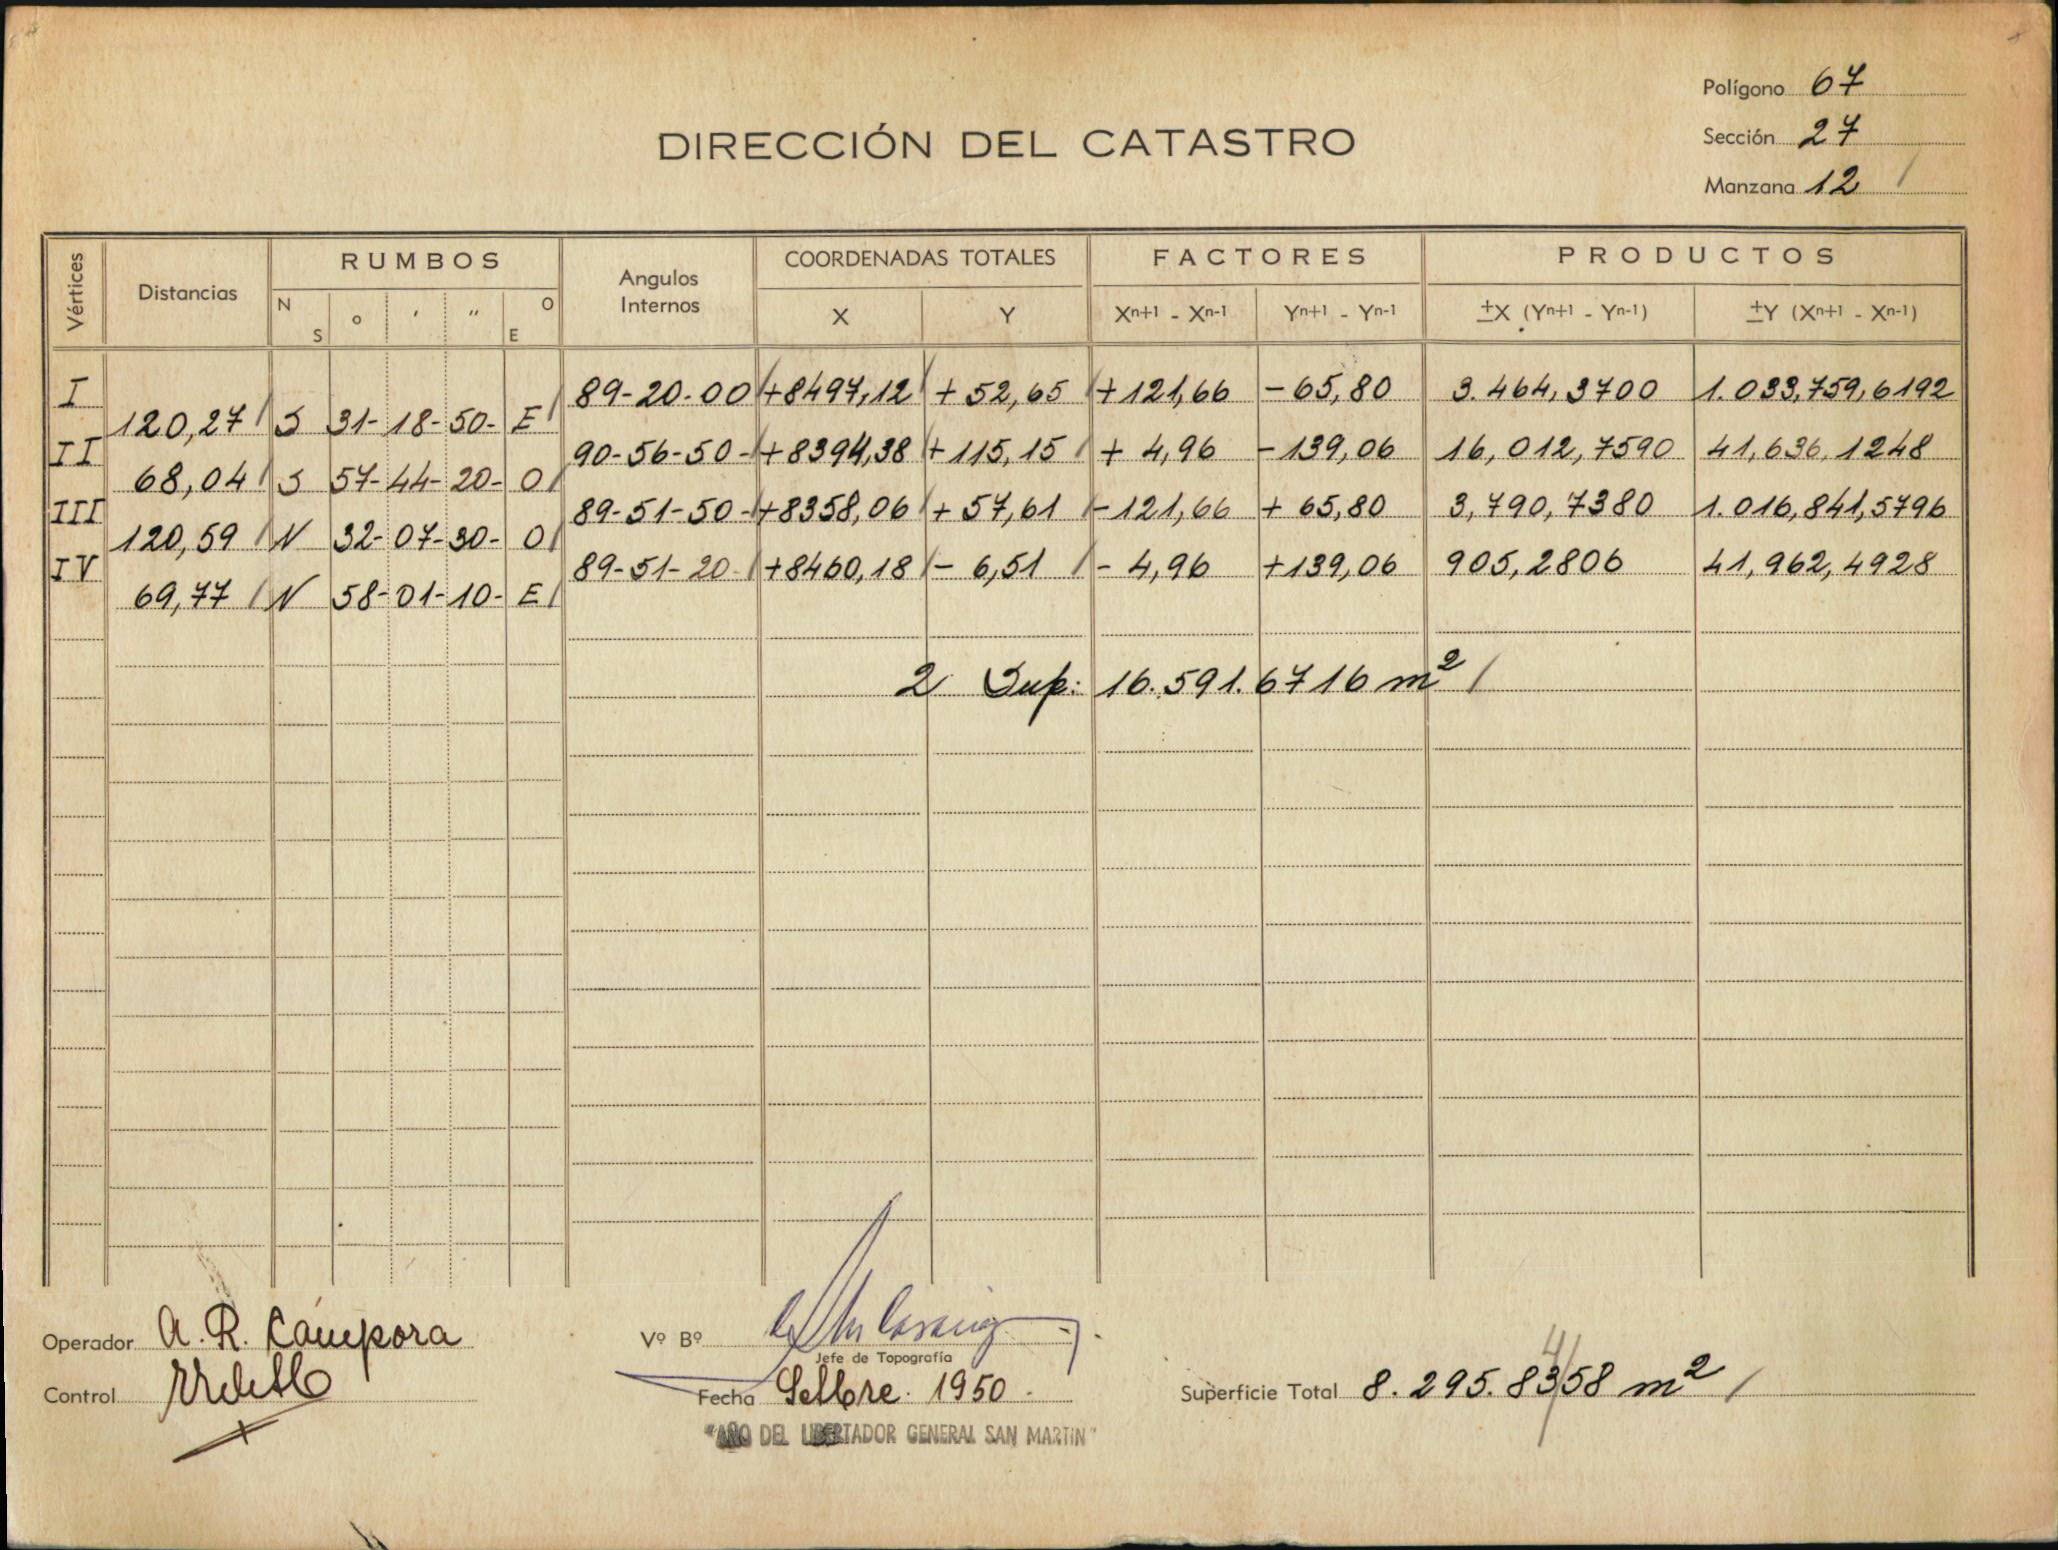 Polígono 67
DIRECCIÓN DEL CATASTRO
Sección 27
Manzana 12 /
Vértices Distancias RUMBOS Angulos Internos COORDENADAS TOTALES FACTORES PRODUCTOS
N S o ' " O E X Y Xn+1 - Xn-1 Yn+1 - Yn-1 ±X (Yn+1 - Yn-1) ±Y (Xn+1 - Xn-1)
I 89-20-00 / +8497,12 / + 52,65 / + 121,66 - 65,80 3.464,3700 1.033,759,6192
120,27 / S 31- 18- 50- E /
II 90-56-50- +8394,38 / + 115,15 / + 4,96 - 139,06 16,012,7590 41,636,1248
68,04 / S 57- 44- 20- O /
III 89-51-50- / +8358,06 / + 57,61 / - 121,66 + 65,80 3,790,7380 1.016,841,5796
120,59 / N 32- 07- 30- O /
IV 89-51-20- / +8460,18 / - 6,51 / - 4,96 +139,06 905,2806 41,962,4928
69,77 / N 58- 01- 10- E /
2 Sup: 16.591.6716 m² /
Operador A. R. Cámpora
Vº Bº
Jefe de Topografía
Control
Fecha Setbre. 1950.
Superficie Total 8.295.8358 m² /
4
"AÑO DEL LIBERTADOR GENERAL SAN MARTIN"